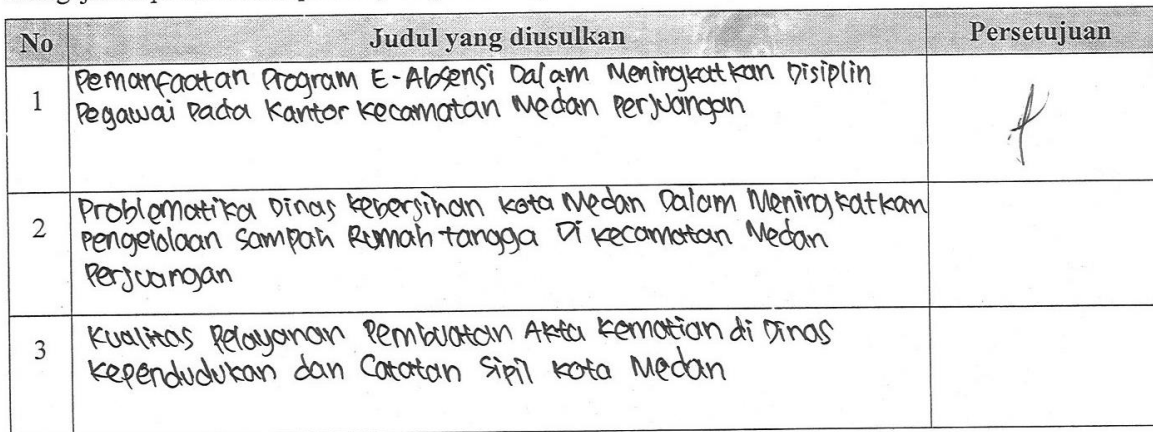 No Judul yang diusulkan Persetujuan
1 Pemanfaatan Program E-Absensi Dalam Meningkatkan Disiplin
Pegawai Pada Kantor Kecamatan Medan Perjuangan
2 Problematika Dinas Kebersihan Kota Medan Dalam Meningkatkan
Pengelolaan Sampah Rumah tangga Di Kecamatan Medan
Perjuangan
3 Kualitas Pelayanan Pembuatan Akta Kematian di Dinas
Kependudukan dan Catatan Sipil Kota Medan